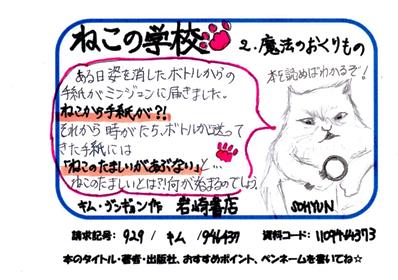 ねこの学校
2.魔法のおくりもの
ある日姿を消したボトルからの
手紙がミンジュンに届きました。
ねこから手紙が?!
それから時がたち、ボトルが送って
きた手紙には
「ねこのたましいがあぶない」と…
ねこのたましいとは?!何が始まるのでしょう。
本を読めばわかるぞ!
キム・ジンギョン作 岩崎書店
SOHYUN
請求記号: 929 / キム /
資料コード:
本のタイトル・著者・出版社、おすすめポイント、ペンネームを書いてね☆